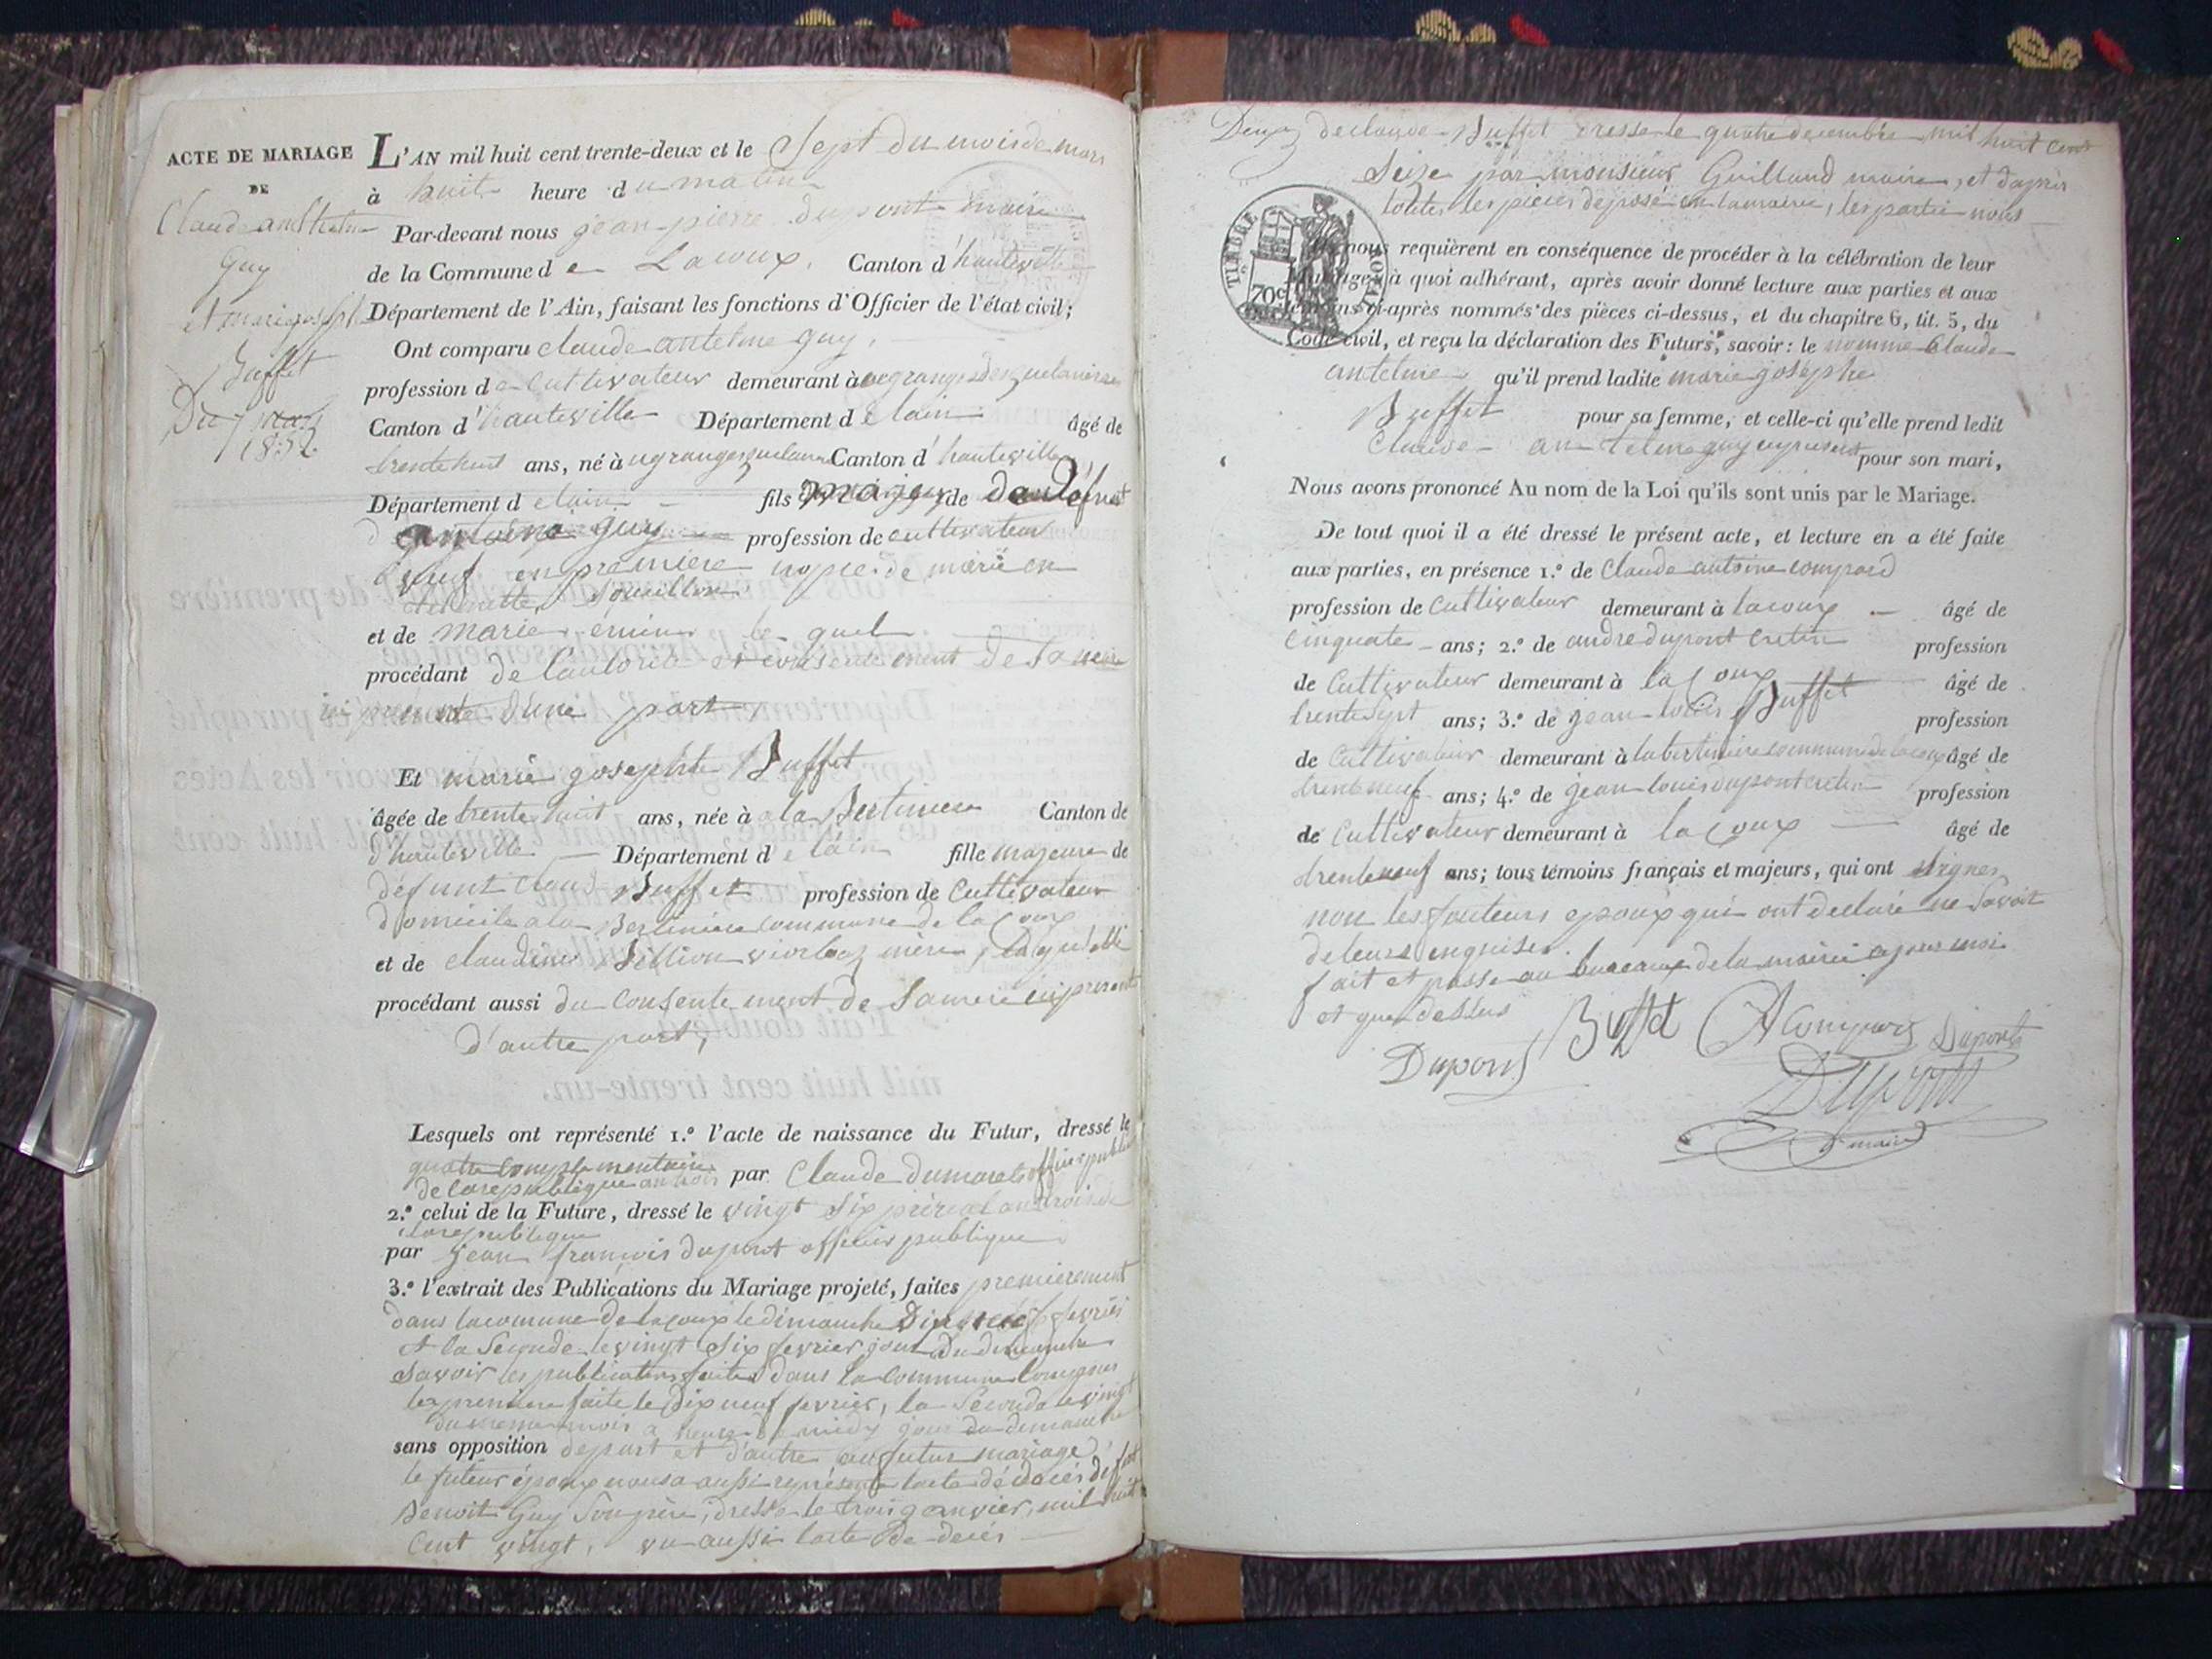 ACTE DE MARIAGE
DE
Claude anthelme
Guy
et marie joseph
Buffet
Du 7 mars
1832
L'AN mil huit cent trente-deux et le Sept du mois de mars
à huit heure du matin
Par-devant nous jean-pierre dupont maire
de la Commune de Lacoux, Canton d'hauteville
Département de l'Ain, faisant les fonctions d'Officier de l'état civil;
Ont comparu claude antelme guy,
profession de Cultivateur demeurant à
Canton d'hauteville Département de lain âgé de
trente huit ans, né à Canton d'hauteville
Département de lain fils majeur de défunt
d antoine guy profession de cultivateur
veuf en premiere nopce de marie
et de marie emin le quel
procédant de lautorité et consentement de sa mere
ici presente d'une part,
Et marie gosephte Buffet
âgée de trente huit ans, née à a la Bertiniere Canton de
d'hauteville Département de lain fille majeure de
défunt claud Buffet profession de Cultivateur
domicile a la Bertiniere commune de la Coux
et de claudine mère, laquelle
procédant aussi du Consentement de sa mere ici present
d'autre part,
Lesquels ont représenté 1.º l'acte de naissance du Futur, dressé le
quatre complementaire par Claude dumarets officier public
de la republique an trois
2.º celui de la Future, dressé le vingt six prérial an trois de
la republique
par jean francois dupont officier publique
3.º l'extrait des Publications du Mariage projeté, faites premierement
dans la comune de lacoux le dimanche Dix neuf fevrier
et la Seconde le vingt Six fevrier jour du dimanche
Savoir les publications faites dans la commune
la premiere faite le dix neuf fevrier, la Seconde le vingt
du meme mois a heure de midy jour du dimanche
sans opposition de part et d'autre au futur mariage
le futeur époux nous a aussi représenté lacte de décès de
Benoit Guy Son père, dressé le trois janvier, mil huit
Cent vingt, vu aussi lacte de decés
de claude Buffet dressé le quatre decembre mil huit cent
Seize par monsieur Guilland maire, et dapres
toutes les pieces déposé en la mairie, les partie nous
nous requièrent en conséquence de procéder à la célébration de leur
Mariage; à quoi adhérant, après avoir donné lecture aux parties et aux
témoins ci-après nommés des pièces ci-dessus, et du chapitre 6, tit. 5, du
Code civil, et reçu la déclaration des Futurs, savoir: le nomme Claude
antelme qu'il prend ladite marie gosephe
Buffet pour sa femme, et celle-ci qu'elle prend ledit
Claude antelme guy pour son mari,
Nous avons prononcé Au nom de la Loi qu'ils sont unis par le Mariage.
De tout quoi il a été dressé le présent acte, et lecture en a été faite
aux parties, en présence 1.º de Claude antoine compard
profession de Cultivateur demeurant à lacoux âgé de
cinquate ans; 2.º de andre dupont cretin profession
de Cultivateur demeurant à la Coux âgé de
trente sept ans; 3.º de jean louis Buffet profession
de Cultivateur demeurant à la bertiniere commune de lacoux âgé de
trente neuf ans; 4.º de jean louis dupont cretin profession
de Cultivateur demeurant à la Coux âgé de
trente neuf ans; tous témoins français et majeurs, qui ont signer
non les futeurs epoux qui ont declaré ne Savoir
de leurs enquiser.
fait et passe au bureaux de la mairie
et que dessus
Dupont Buffet Dupont
Dupont
maire
TIMBRE ROYAL
70c